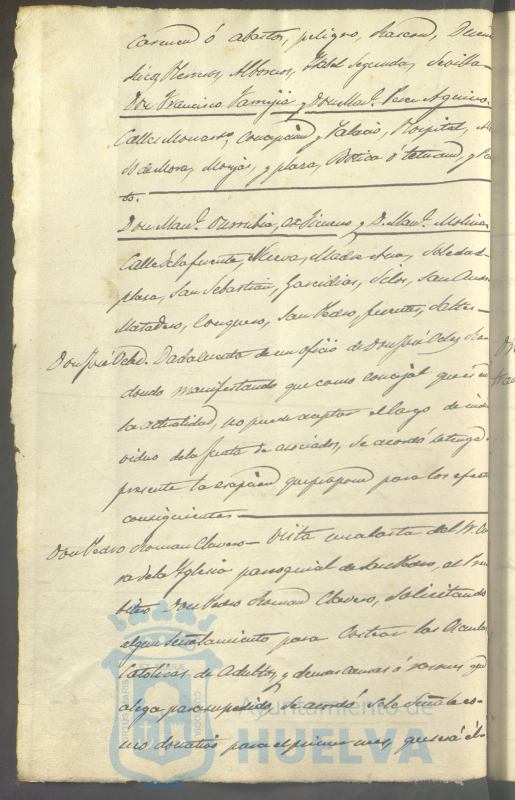 Carmen ó abastos, peligro, Rascon, Duque
Rico, Herreros, Alboncos, Hotel Segunda, Sevilla
Don Francisco Jamujia y Don Man.l Perez Aquino.
Calles Monasterio, Concepcion, Palacio, Hospital,
M. de Mora, Monjas, y plaza, Botica ó tetuan, y Pu
to.
Don Man.l Ourrubia, y D. Man.l Molina
Calle de la fuente, Nueva, Madre Ana, Soledad
plaza, San Sebastian, Garcidias, Silos, San Andres
Matadero, Conquero, San Pedro, fuentes,
Don José Ochoa. Dada cuenta de un oficio de Don José
dondo manifestando que como concejal que es en
la actualidad, no puede aceptar el cargo de indi
viduo de la Junta de asociados, se acordó se tenga
presente la escepcion que propone para los efectos
consiguientes
Don Pedro Roman Clavero - Vista una carta del S.r Cu
ra de la Yglesia parroquial de San Pedro, el Pres
bitero Don Pedro Roman Clavero, solicitando
algun señalamiento para costear las Escuelas
Catolicas de Adultos, y demas causas ó razones que
alega para su pedido, se acordó se le señale co
mo donativo para el primer mes, que será el
Ayuntamiento de
HUELVA